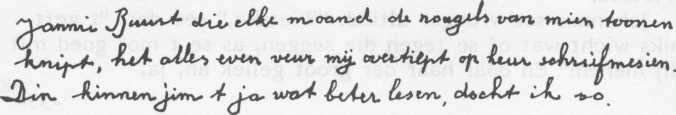 Jannie Buust die elke moand de noagels van mien toonen
knipt, het alles even veur mij overtiept op heur schriefmesien.
Din kinnen jim t ja wat beter lesen, docht ik zo.